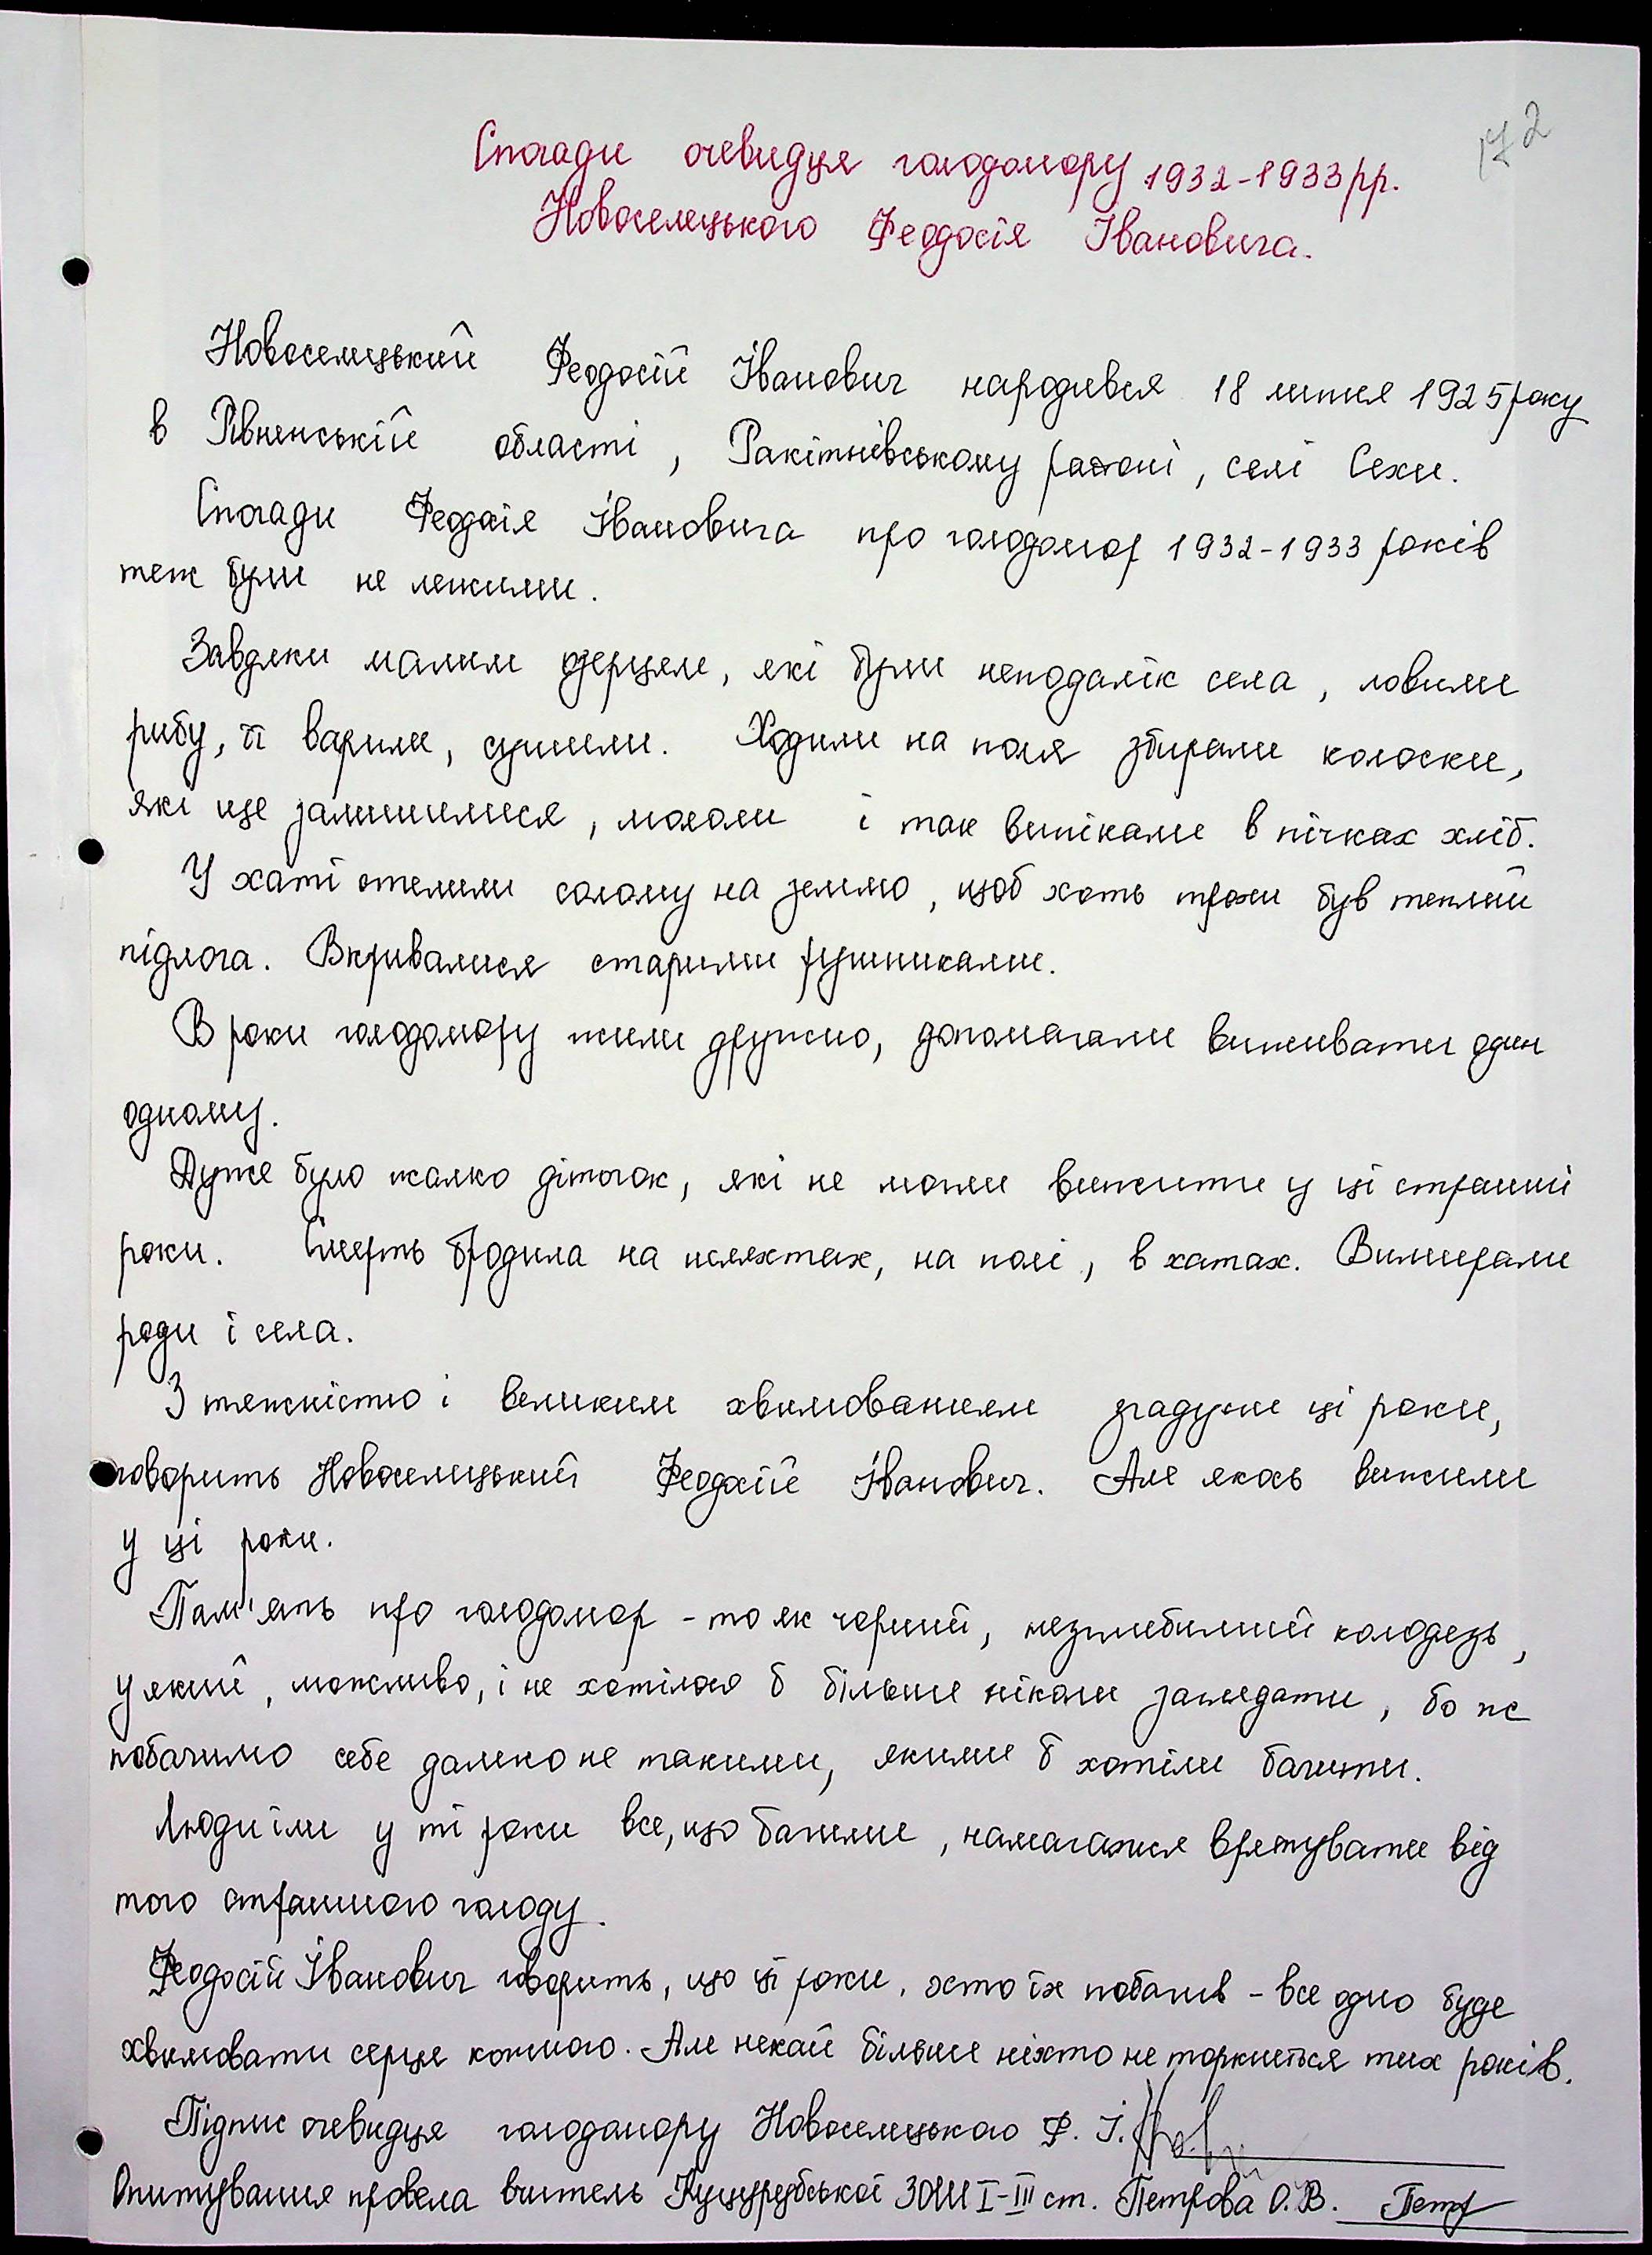 172
Спогади очевидця голодомору 1932-1933 рр.
Новоселецького Феодосія Івановича.
Новоселецький Феодосій Іванович народився 18 липня 1925 року
в Рівненській області, Ракітнівському районі, селі Сехи.
Спогади Феодосія Івановича про голодомор 1932-1933 років
теж були не легкими.
Завдяки малим озерцям, які були неподалік села, ловили
рибу, її варили, сушили. Ходили на поля збирали колоски,
які ще залишилися, мололи і так випікали в пічках хліб.
У хаті стелили солому на землю, щоб хоть трохи був теплий
підлога. Вкривалися старими рушниками.
В роки голодомору жили дружно, допомагали виживати один
одному.
Дуже було жалко діточок, які не могли вижити у ці страшні
роки. Смерть бродила на шляхтах, на полі, в хатах. Вимирали
роди і села.
З тяжкістю і великим хвилюванням згадуючи ці роки,
говорить Новоселицький Феодосій Іванович. Але якось вижили
у ці роки.
Пам'ять про голодомор - то як чорний, незглибимий колодязь,
у який, можливо, і не хотілося б більше ніколи заглядати, бо не
побачимо себе далеко не такими, якими б хотіли бачити.
Люди їли у ті роки все, що бачили, намагалися врятувати від
того страшного голоду.
Феодосій Іванович говорить, що ці роки, хто їх побачив - все одно буде
хвилювати серце кожного. Але нехай більше ніхто не торкнеться тих років.
Підпис очевидця голодомору Новоселецького Ф. І.
Опитування провела вчитель Куцурубської ЗОШ І-ІІІ ст. Петрова О. В. Петр